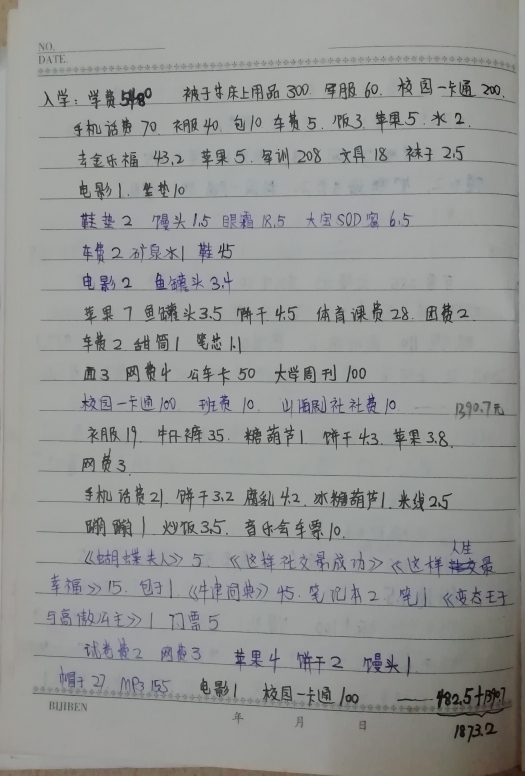 NO.
DATE.
入学：学费5480 被子等床上用品300. 军服60. 校园一卡通200.
手机话费70. 衣服40. 包10 车费5. 饭3. 苹果5. 水2.
去金乐福43.2 苹果5. 军训208 文具18 袜子2.5
电影1. 坐垫10
鞋垫2 馒头1.5 眼霜18.5 大宝SOD蜜6.5
车费2 矿泉水1 鞋45
电影2 鱼罐头3.4
苹果7 鱼罐头3.5 饼干4.5 体育课费28. 团费2.
车费2 甜筒1 笔芯1.1
面3 网费4 公车卡50 大学周刊100
校园一卡通100 班费10. 山海剧社社费10. —— 1390.7元
衣服19. 牛仔裤35. 糖葫芦1 饼干4.3. 苹果3.8.
网费3.
手机话费21. 饼干3.2 腐乳4.2. 冰糖葫芦1. 米线2.5
1. 炒饭3.5. 音乐会车票10.
《蝴蝶夫人》5. 《这样社交最成功》《这样人生最
幸福》15. 包子1. 《牛津词典》45. 笔记本2 笔1 《变态王子
与高傲公主》1 门票5
试卷费2 网费3 苹果4 饼干2 馒头1
帽子27 MP3 155 电影1 校园一卡通100 —— 482.5+1390.7
BIJIBEN 年 月 日 1873.2